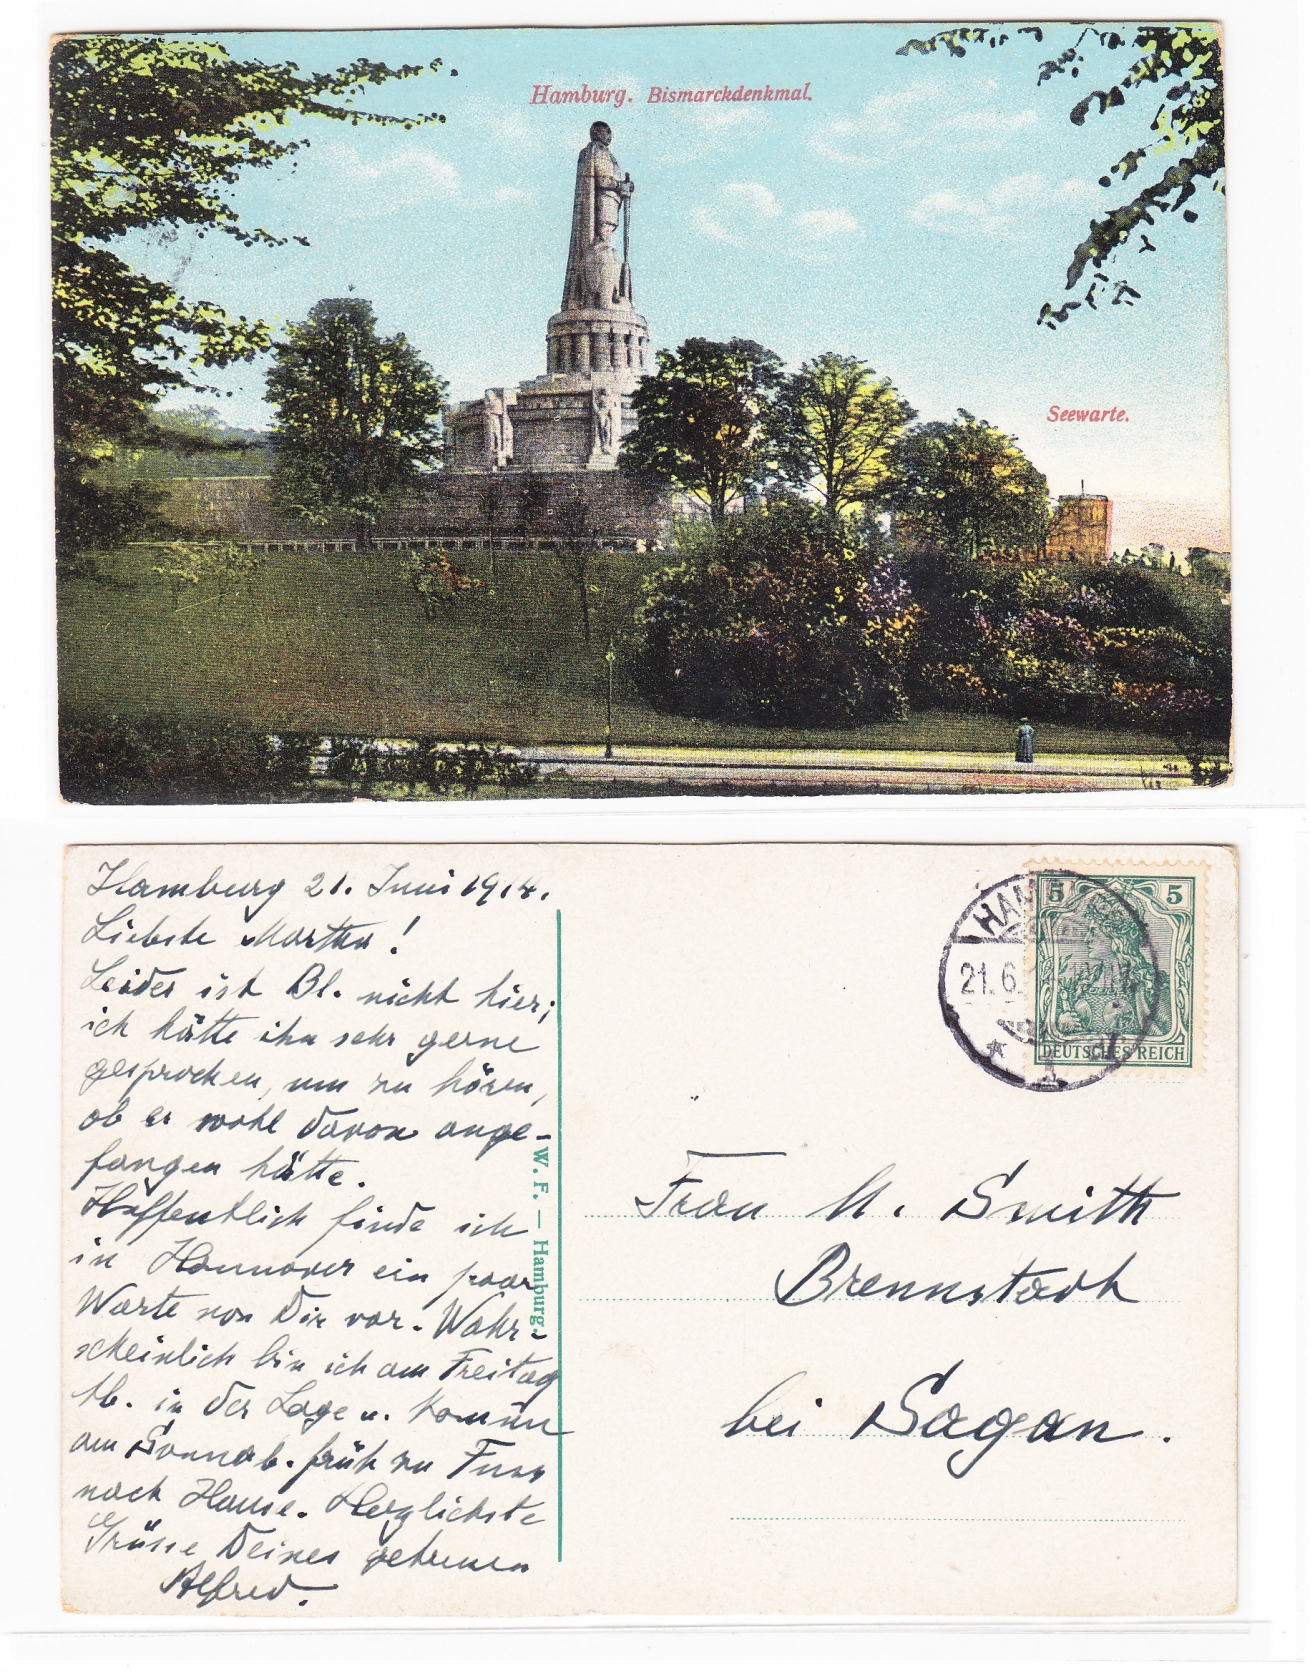 Hamburg. Bismarckdenkmal.
Seewarte.
Hamburg 21. Juni 1914.
Liebste Martha!
Leider ist Bl. nicht hier;
ich hätte ihn sehr gerne
gesprochen, um zu hören,
ob er wohl davon ange-
fangen hätte.
Hoffentlich finde ich
in Hannover ein paar
Worte von Dir vor. Wahr-
scheinlich bin ich am Freitag
Ab. in der Lage u. komme
am Sonnab. früh zu Fuss
nach Hause. Herzlichste
Grüsse Deines getreuen
Alfred.
W. F. — Hamburg.
HAM
21.6.
5 5
DEUTSCHES REICH
1
Frau M. Smith
Brennstadt
bei Sagan.